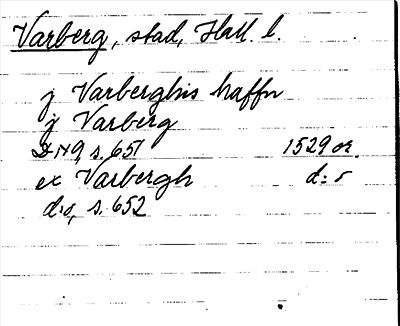 Varberg, stad, Hall l.
j Varberghis haffn
j Varberg
s. 651 1529 or.
ex Varbergh d:o
d:o, s. 652